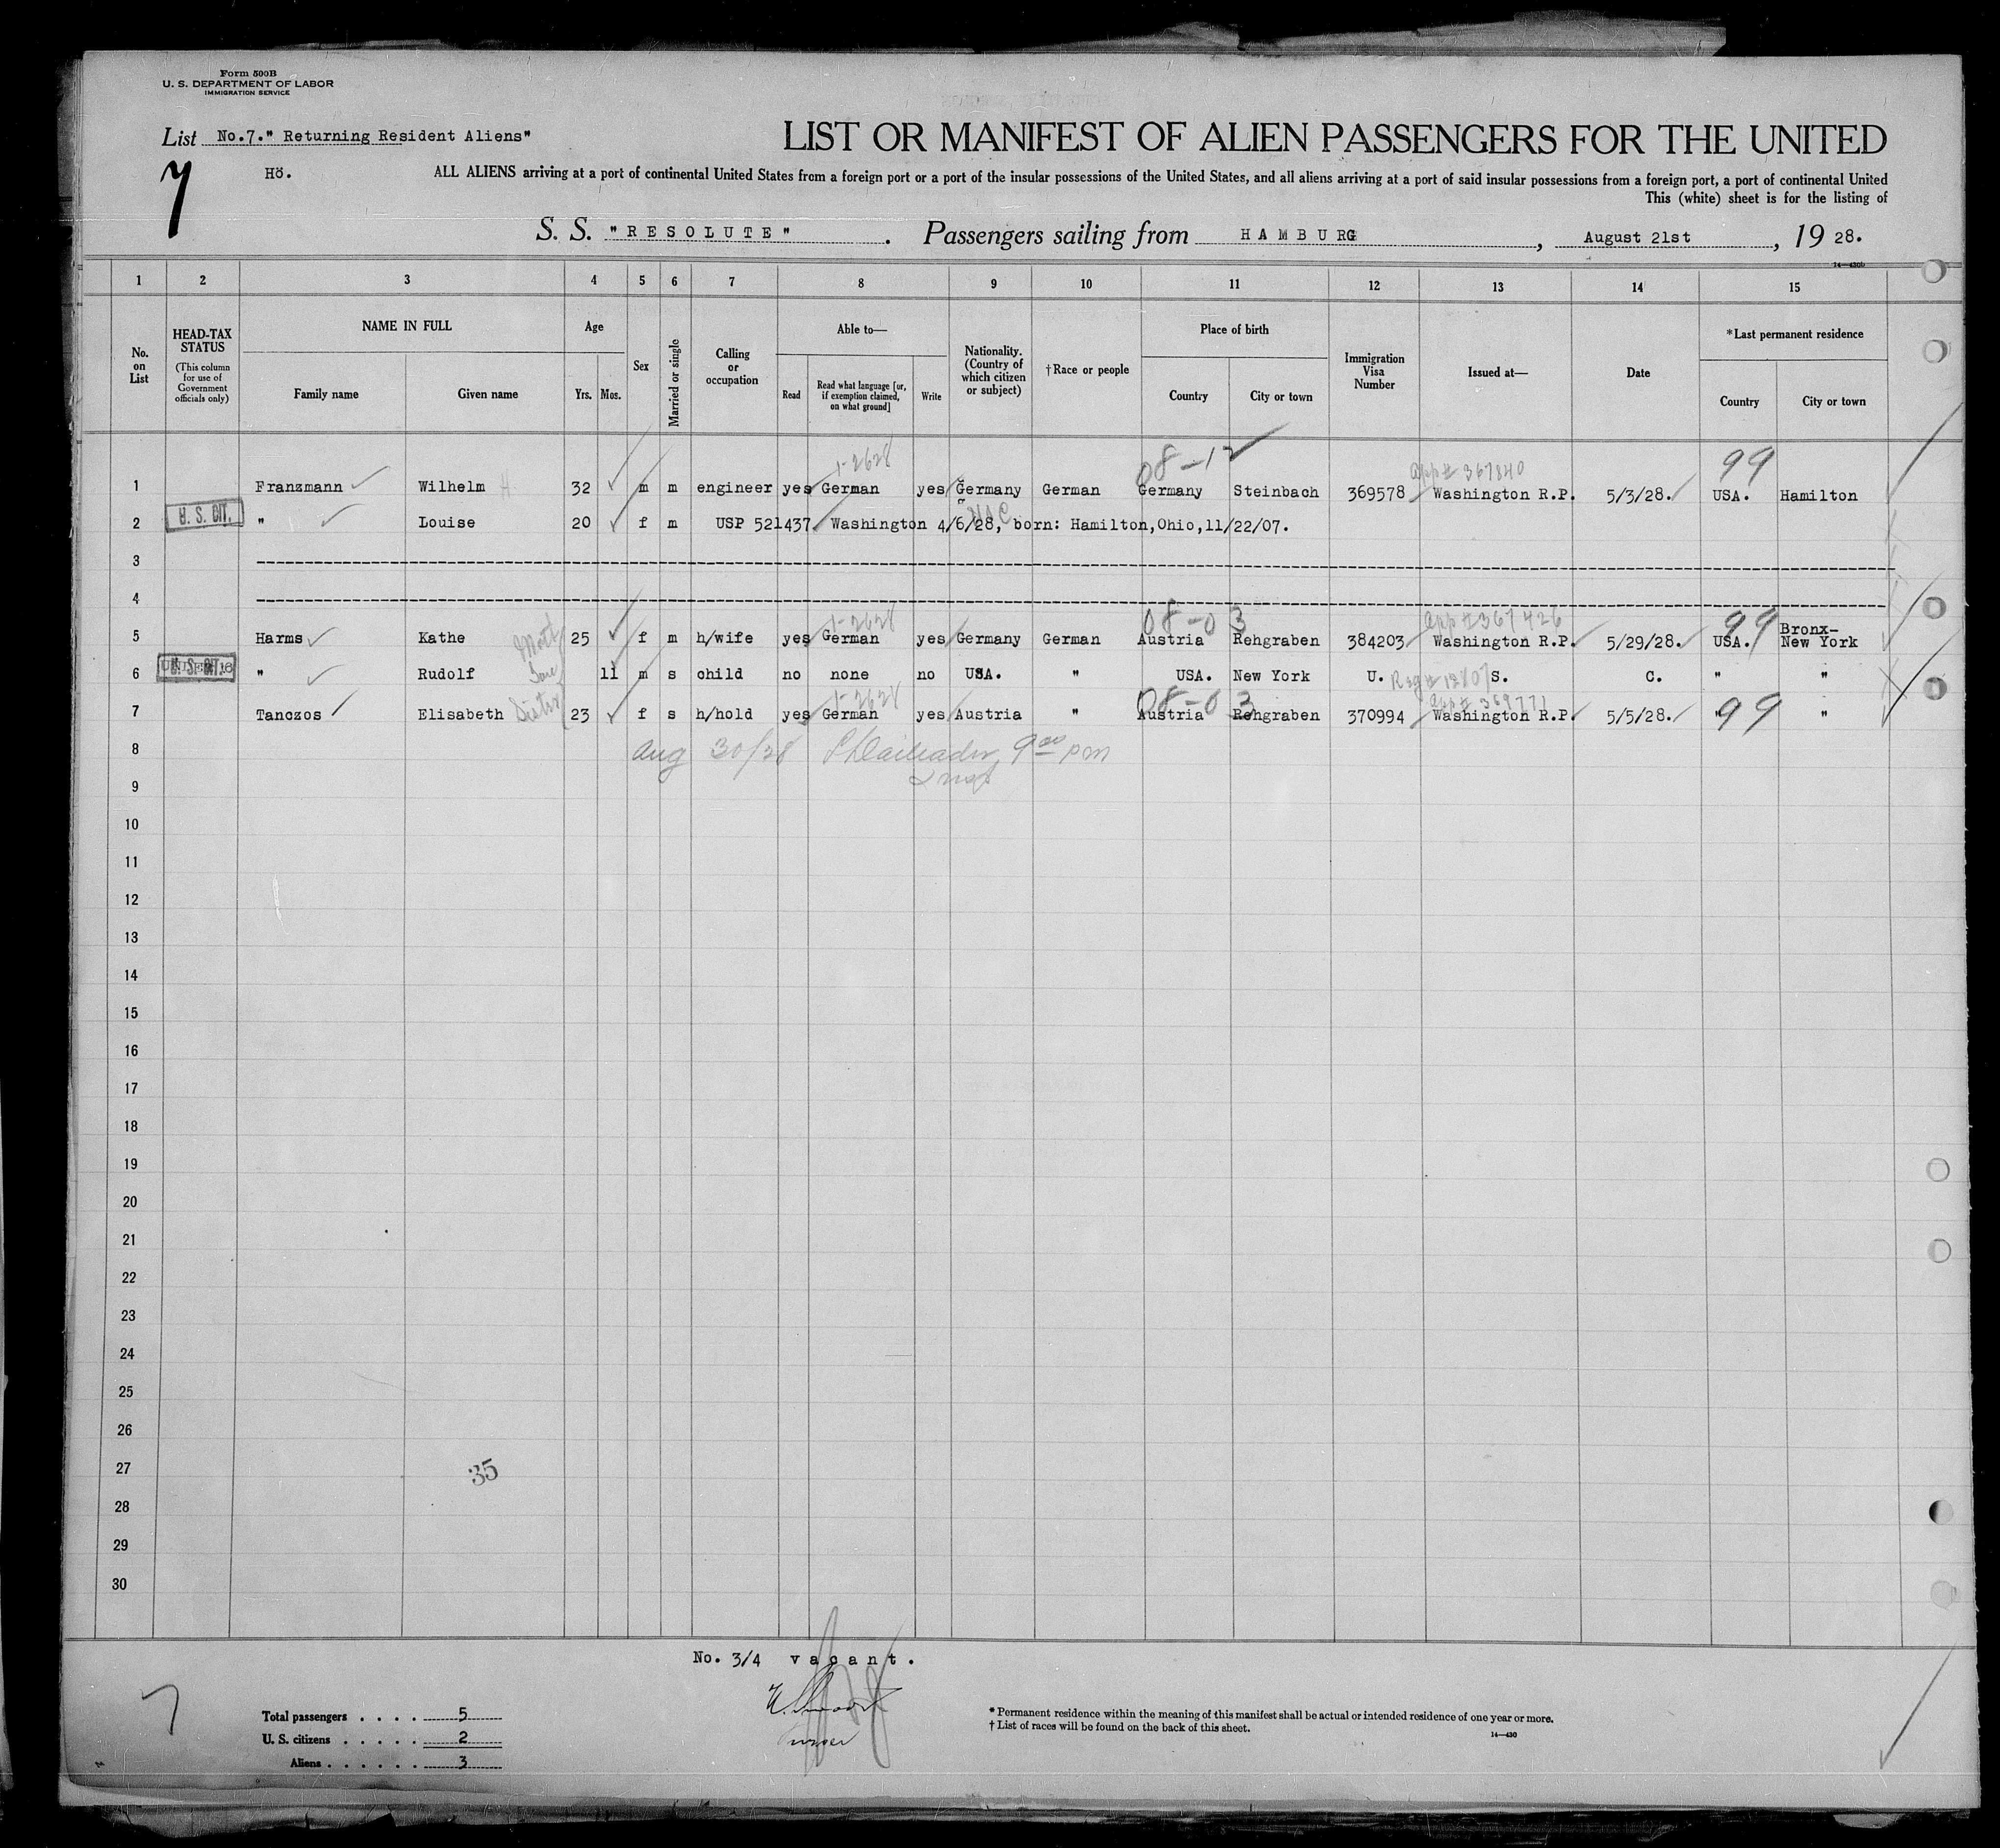 Form 500B
U. S. DEPARTMENT OF LABOR
IMMIGRATION SERVICE
List No.7." Returning Resident Aliens"
LIST OR MANIFEST OF ALIEN PASSENGERS FOR THE UNITED
7
Hö.
ALL ALIENS arriving at a port of continental United States from a foreign port or a port of the insular possessions of the United States, and all aliens arriving at a port of said insular possessions from a foreign port, a port of continental United
This (white) sheet is for the listing of
S. S. "RESOLUTE". Passengers sailing from HAMBURG, August 21st, 1928.
14—430b
1 2 3 4 5 6 7 8 9 10 11 12 13 14 15
No. on List
HEAD-TAX STATUS
(This column for use of Government officials only)
NAME IN FULL
Family name Given name
Age
Yrs. Mos.
Sex
Married or single
Calling or occupation
Able to—
Read Read what language [or, if exemption claimed, on what ground] Write
Nationality. (Country of which citizen or subject)
†Race or people
Place of birth
Country City or town
Immigration Visa Number
Issued at—
Date
*Last permanent residence
Country City or town
1-2628 08-12 app# 367840 99
1 Franzmann Wilhelm H 32 m m engineer yes German yes Germany German Germany Steinbach 369578 Washington R.P. 5/3/28. USA. Hamilton
2 U. S. CIT. " Louise 20 f m USP 521437 Washington 4/6/28, born: Hamilton,Ohio,11/22/07.
3
4
1-2628 08-03 app# 367426 99
5 Harms Kathe 25 f m h/wife yes German yes Germany German Austria Rehgraben 384203 Washington R.P. 5/29/28. USA. Bronx-New York
6 U. S. CIT. " Rudolf 11 m s child no none no USA. " USA. New York U. S. C. " "
1-2628 08-03 app# 369771 99
7 Tanczos Elisabeth Sister 23 f s h/hold yes German yes Austria " Austria Rehgraben 370994 Washington R.P. 5/5/28. " "
8 Aug 30/28 9 00 pm
Insp
9
10
11
12
13
14
15
16
17
18
19
20
21
22
23
24
25
26
27
35
28
29
30
No. 3/4 vacant.
7
Purser
Total passengers . . . . 5
U. S. citizens . . . . . 2
Aliens . . . . . . 3
* Permanent residence within the meaning of this manifest shall be actual or intended residence of one year or more.
† List of races will be found on the back of this sheet.
14—430